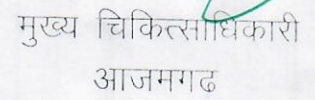 मुख्य चिकित्साधिकारी
आजमगढ